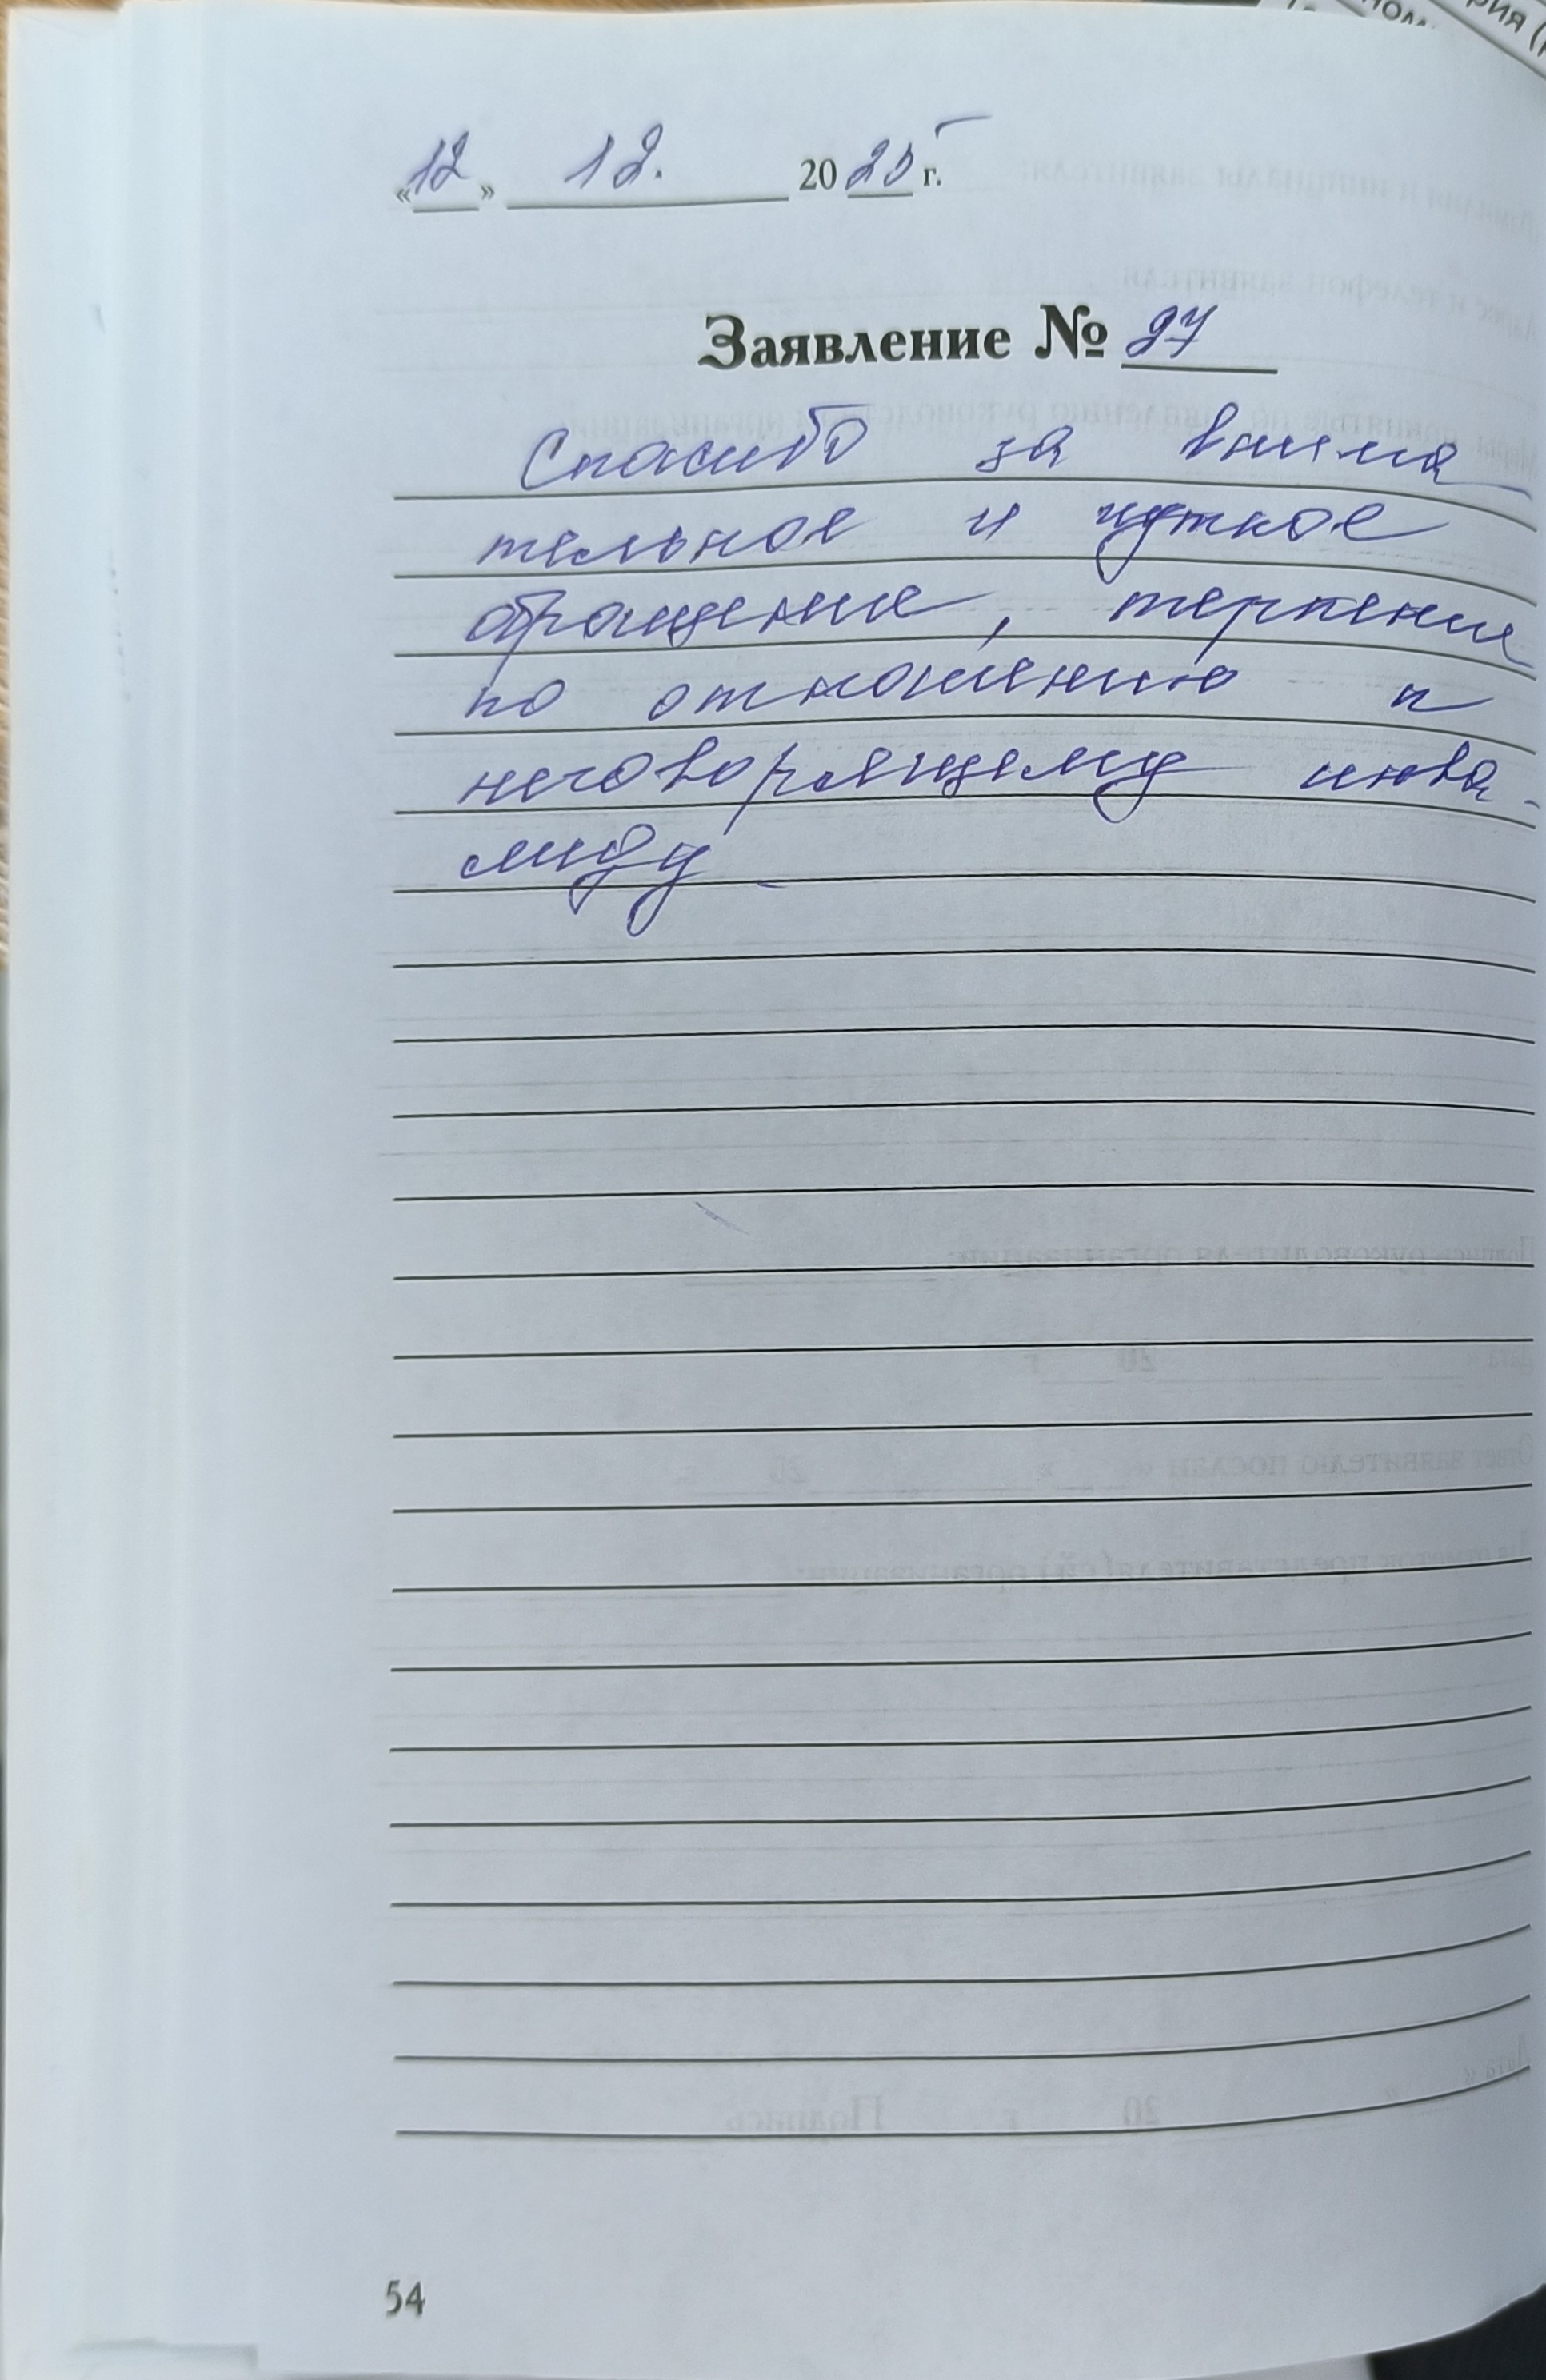 «12» 12. 2025 г.
Заявление № 27
Спасибо за внима-
тельное и чуткое
обращение, терпение
по отношению к
неговорящему инва-
лиду.
54